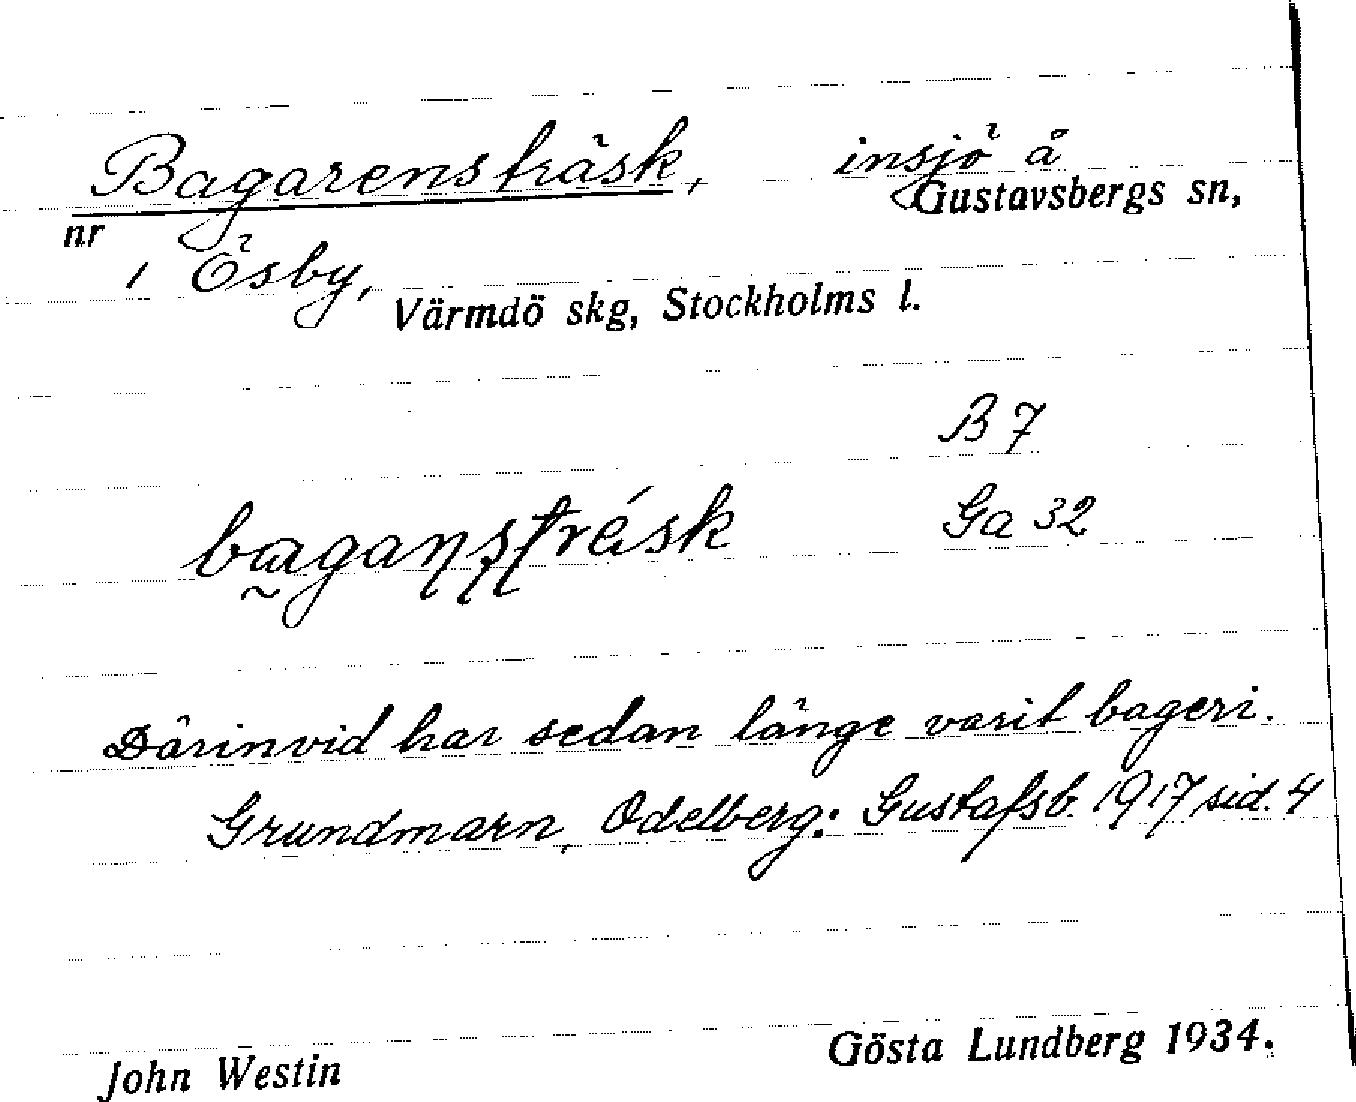 Bagarensträsk, insjö å
Gustavsbergs sn,
nr 1 Ösby,
Värmdö skg, Stockholms l.
B 7
bagaṇṣṭrésk Ga 32
Därinvid har sedan länge varit bageri.
Grundmarn, Odelberg: Gustafsb. 1917 sid. 4
John Westin Gösta Lundberg 1934.